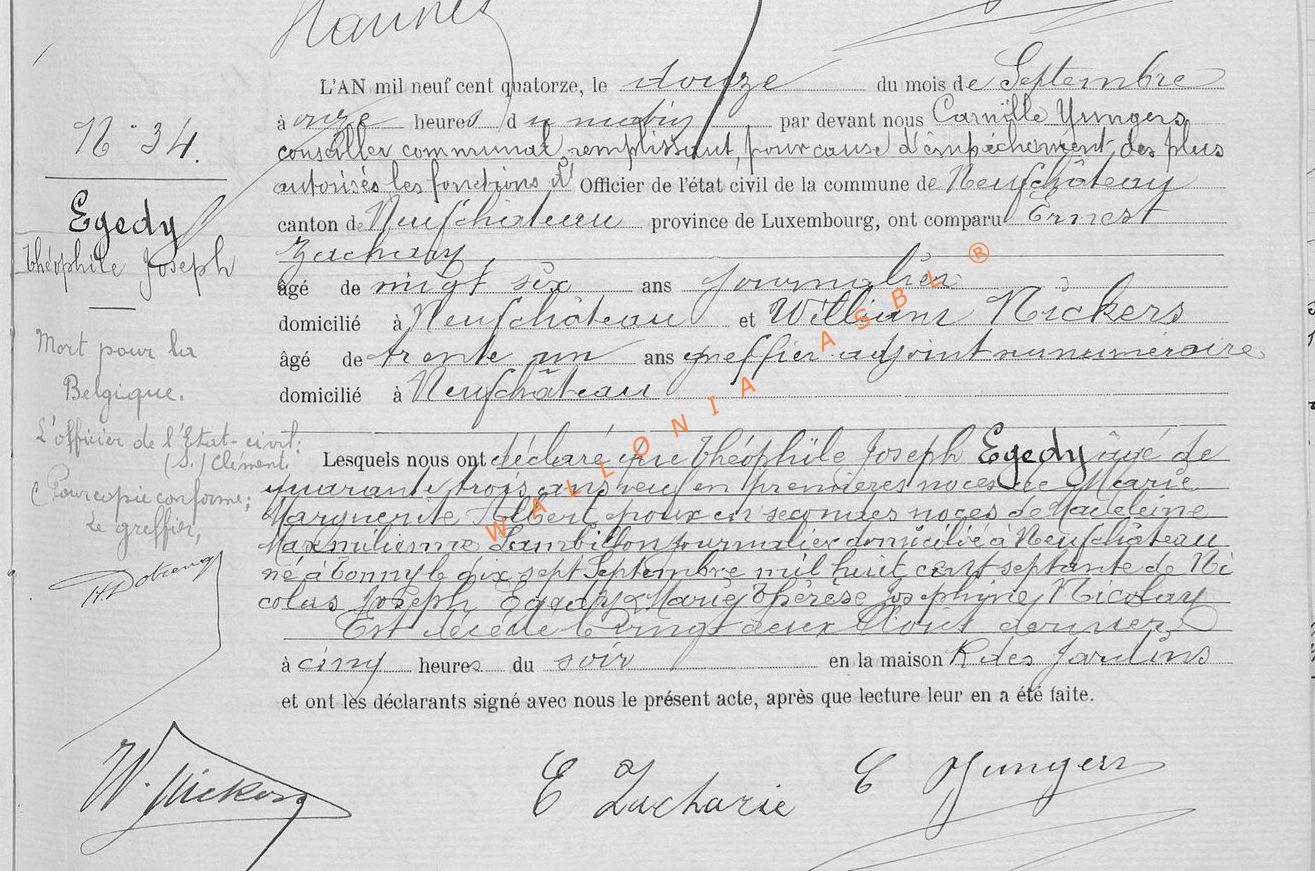 L'AN mil neuf cent quatorze, le douze du mois de Septembre
à onze heures du matin par devant nous Camille Yungers
conseiller communal remplissant, pour cause d'empêchement des plus
autorisés les fonctions d' Officier de l'état civil de la commune de Neufchâteau
canton de Neufchâteau province de Luxembourg, ont comparu Ernest
Zachary
âgé de vingt six ans journalier
domicilié à Neufchâteau et William Nickers
âgé de trente un ans greffier adjoint
domicilié à Neufchâteau
Lesquels nous ont déclaré que Théophile Joseph Egedy âgé de
quarante trois ans veuf en premières noces de Marie
Marguerite Albert époux en secondes noces de Madeleine
journalier domicilié à Neufchâteau
né à le dix sept Septembre mil huit cent septante de Ni
colas Joseph Egedy & Marie Thérèse Joséphine Nicolay
Est décédé le vingt deux Août dernier
à cinq heures du soir en la maison R. des Jardins
et ont les déclarants signé avec nous le présent acte, après que lecture leur en a été faite.
W. Nickers
E Zacharie
C Yungers
N° 34.
Egedy
Théophile Joseph
Mort pour la
Belgique.
L'officier de l'Etat-civil:
(S.) Clément.
Pour copie conforme;
Le greffier,
WALLONIA ASBL ®